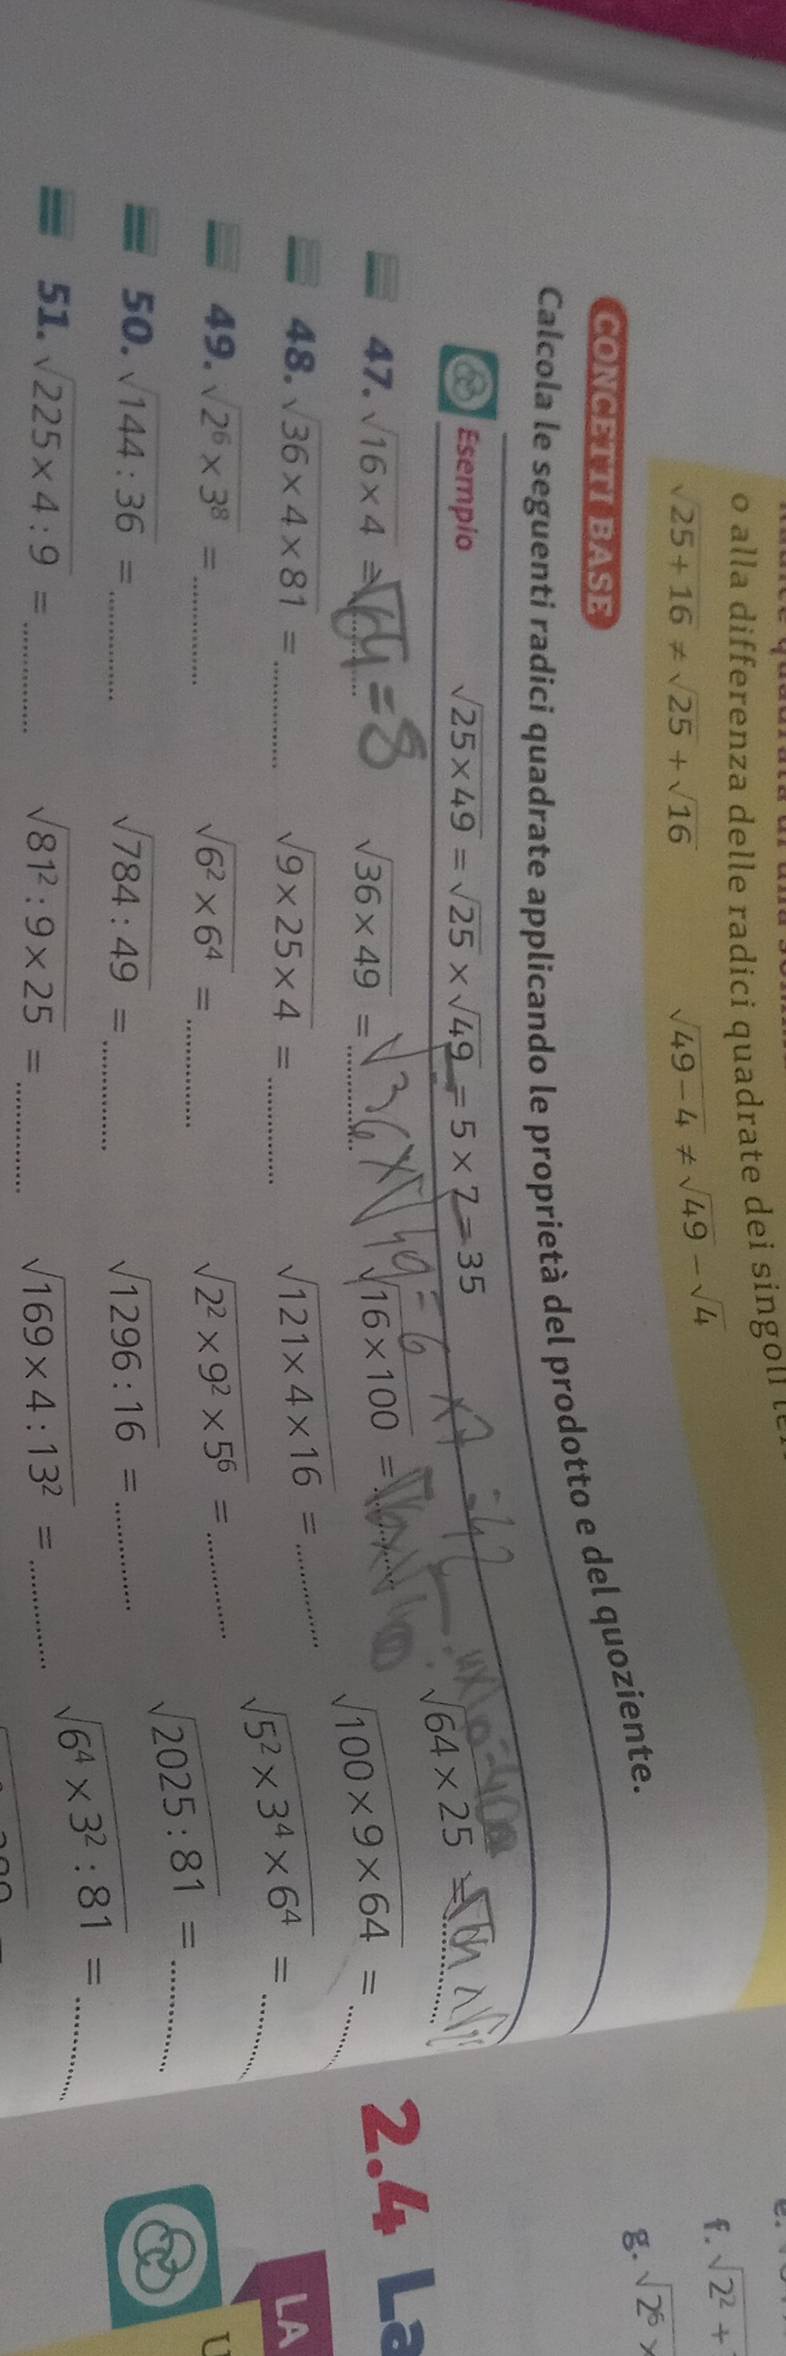 o alla differenza delle radici quadrate dei singoli
√25 + 16 ≠ √25 + √16 √49 − 4 ≠ √49 − √4
CONCETTI BASE
Calcola le seguenti radici quadrate applicando le proprietà del prodotto e del quoziente.
Esempio √25 × 49 = √25 × √49 = 5 × 7 = 35
47. √16 × 4 = √64 = 8 √36 × 49 = √36 × √49 = 6 × 7 = 42 √16 × 100 = √64 × 25 =
48. √36 × 4 × 81 = ............ √9 × 25 × 4 = ............ √121 × 4 × 16 = ............ √100 × 9 × 64 = ............
49. √2⁶ × 3⁸ = ............ √6² × 6⁴ = ............ √2² × 9² × 5⁶ = ............ √5² × 3⁴ × 6⁴ = ............
50. √144 : 36 = ............ √784 : 49 = ............ √1296 : 16 = ............ √2025 : 81 = ............
51. √225 × 4 : 9 = ............ √81² : 9 × 25 = ............ √169 × 4 : 13² = ............ √6⁴ × 3² : 81 = ............
f. √2² +
g. √2⁶ ×
2.4 La
LA